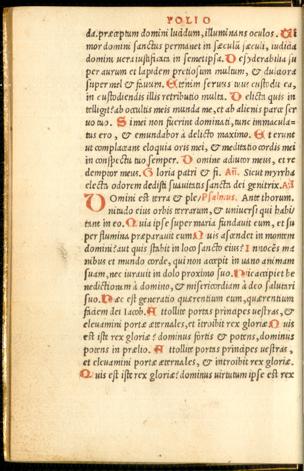 FOLIO
da.præceptum domini lucidum, illuminans oculos. Ti
mor domini sanctus permanet in sæculū sæculi, iudicia
domini uera iustificata in semetipsa. Desyderabilia su
per aurum et lapidem pretiosum multum, & dulciora
super mel & fauum. Etenim seruus tuus custodit ea,
in custodiendis illis retributio multa. Delicta quis in
telligit? ab occultis meis munda me, et ab alienis parce ser
uo tuo. Si mei non fuerint dominati, tunc immacula-
tus ero, & emundabor à delicto maximo. Et erunt
ut complaceant eloquia oris mei, & meditatio cordis mei
in conspectu tuo semper. Domine adiutor meus, et re
demptor meus. Gloria patri & fi. Añ. Sicut myrrha
electa odorem dedisti suauitatis sancta dei genitrix. Añ
Domini est terra & ple/ Psalmus. Ante thorum.
nitudo eius orbis terrarum, & uniuersi qui habi
tant in eo. Quia ipse super maria fundauit eum, et su
per flumina præparauit eum. Quis ascendet in montem
domini? aut quis stabit in loco sancto eius? Innocēs ma
nibus et mundo corde, qui non accepit in uano animam
suam, nec iurauit in dolo proximo suo. Hic accipiet be
nedictionem à domino, & misericordiam à deo salutari
suo. Hæc est generatio quærentium eum, quærentium
faciem dei Iacob. Attollite portas principes uestras, &
eleuamini portæ æternales, et itroibit rex gloriæ. Quis
est iste rex gloriæ? dominus fortis & potens, dominus
potens in prælio. Attollite portas principes uestras,
et eleuamini portæ æternales, & introibit rex gloriæ.
Quis est iste rex gloriæ? dominus uirtutum ipse est rex